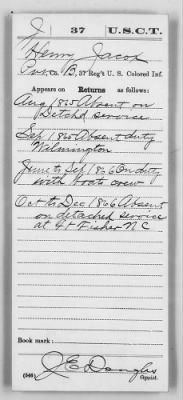 J 37 U.S.C.T.
Henry Jacox
Pvt, Co B, 37 Reg't U. S. Colored Inf.
Appears on Returns as follows:
Aug 1865 Absent on
Detchd service
Sep 1865 Absent duty
Wilmington
June to Sep 1866 On duty
with boats crew
Oct to Dec 1866 Absent
on detached service
at Ft Fisher N C
Book mark:
J E Douglas
(546) Copyist.